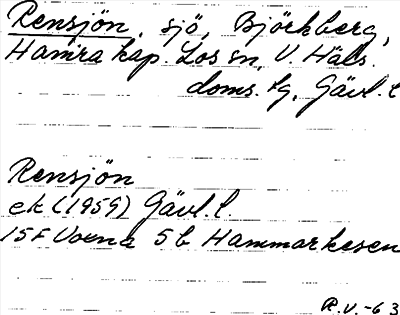 Rensjön, sjö, Björkberg,
Hamra kap. Los sn, V. Häls.
doms. fg, Gävl. l
Rensjön
ek (1959) Gävl. l.
15F Voxna 5b Hammarkesen
R.V.-63